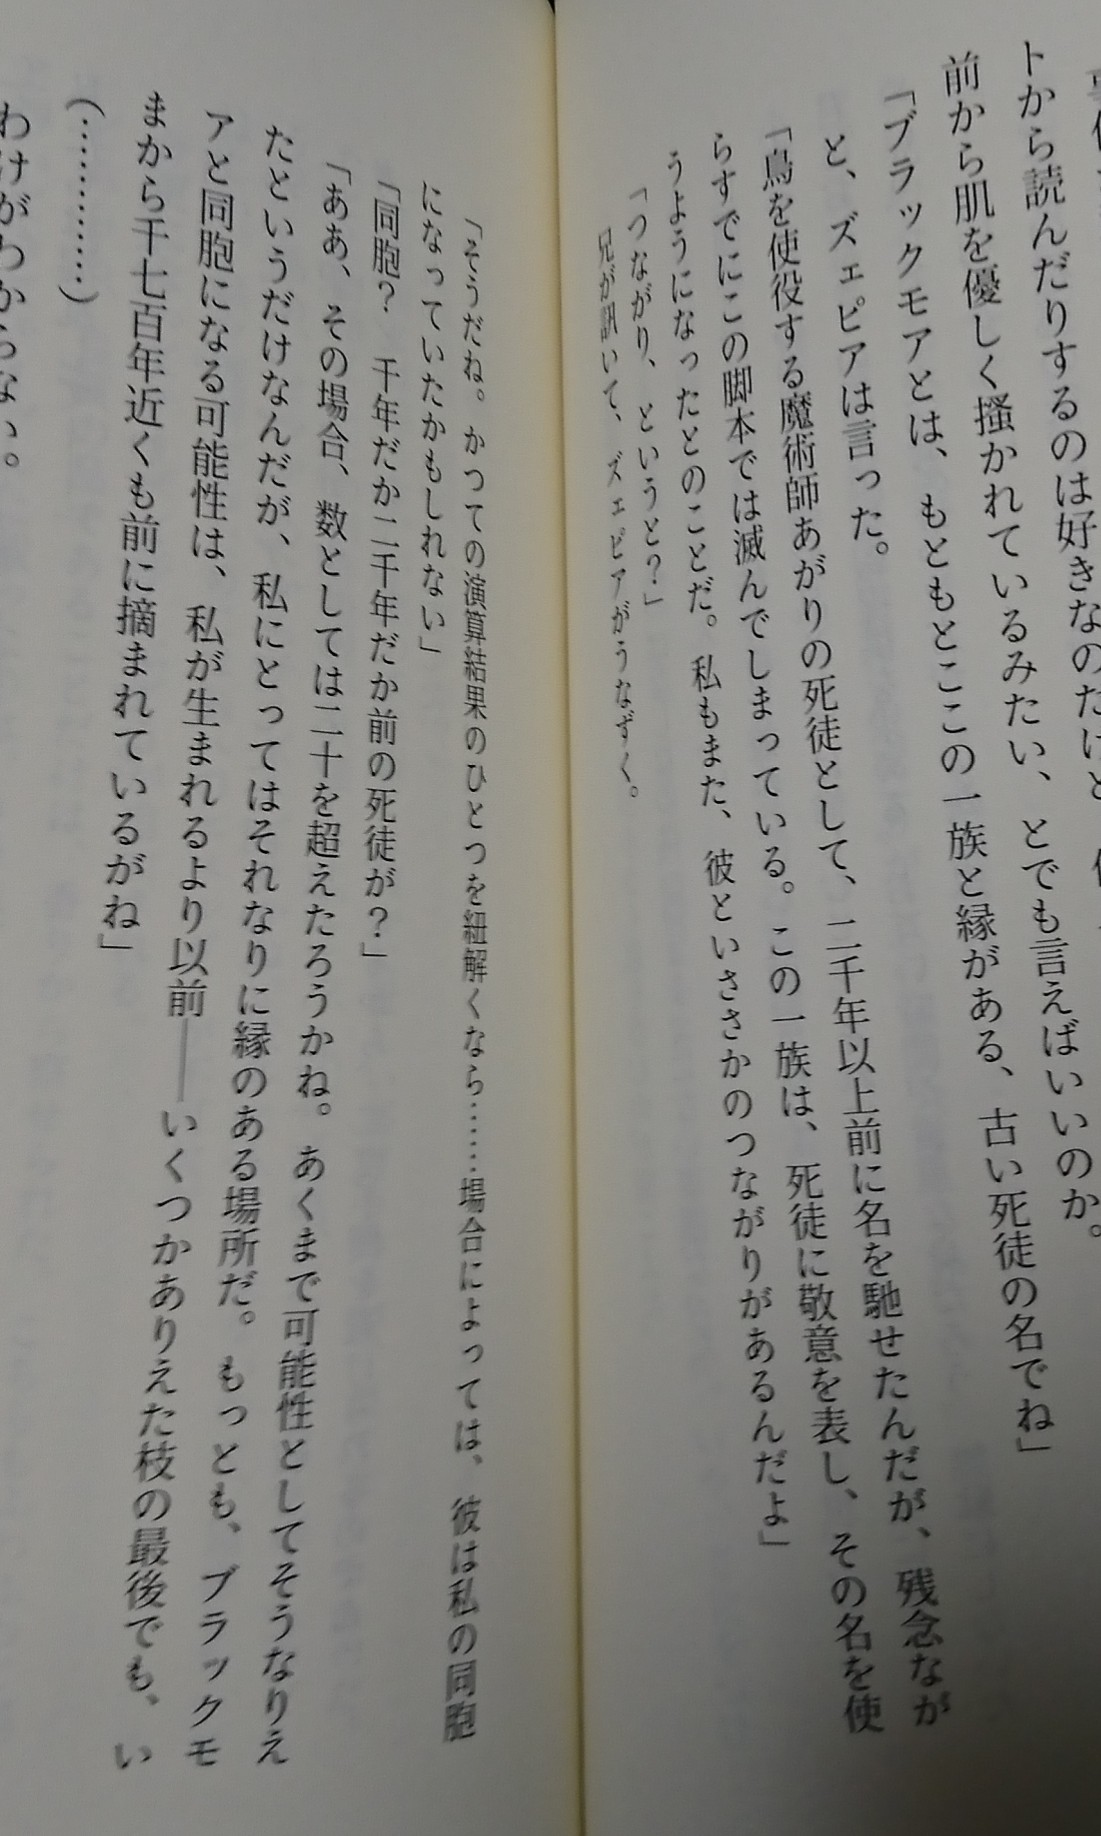 トから読んだりするのは好きなのだけど
前から肌を優しく搔かれているみたい、とでも言えばいいのか。
「ブラックモアとは、もともとここの一族と縁がある、古い死徒の名でね」
と、ズェピアは言った。
「鳥を使役する魔術師あがりの死徒として、二千年以上前に名を馳せたんだが、残念なが
らすでにこの脚本では滅んでしまっている。この一族は、死徒に敬意を表し、その名を使
うようになったとのことだ。私もまた、彼といささかのつながりがあるんだよ」
「つながり、というと?」
兄が訊いて、ズェピアがうなずく。
「そうだね。かつての演算結果のひとつを紐解くなら……場合によっては、彼は私の同胞
になっていたかもしれない」
「同胞? 千年だか二千年だか前の死徒が?」
「ああ、その場合、数としては二十を超えたろうかね。あくまで可能性としてそうなりえ
たというだけなんだが、私にとってはそれなりに縁のある場所だ。もっとも、ブラックモ
アと同胞になる可能性は、私が生まれるより以前――いくつかありえた枝の最後でも、い
まから千七百年近くも前に摘まれているがね」
(…………)
わけがわからない。